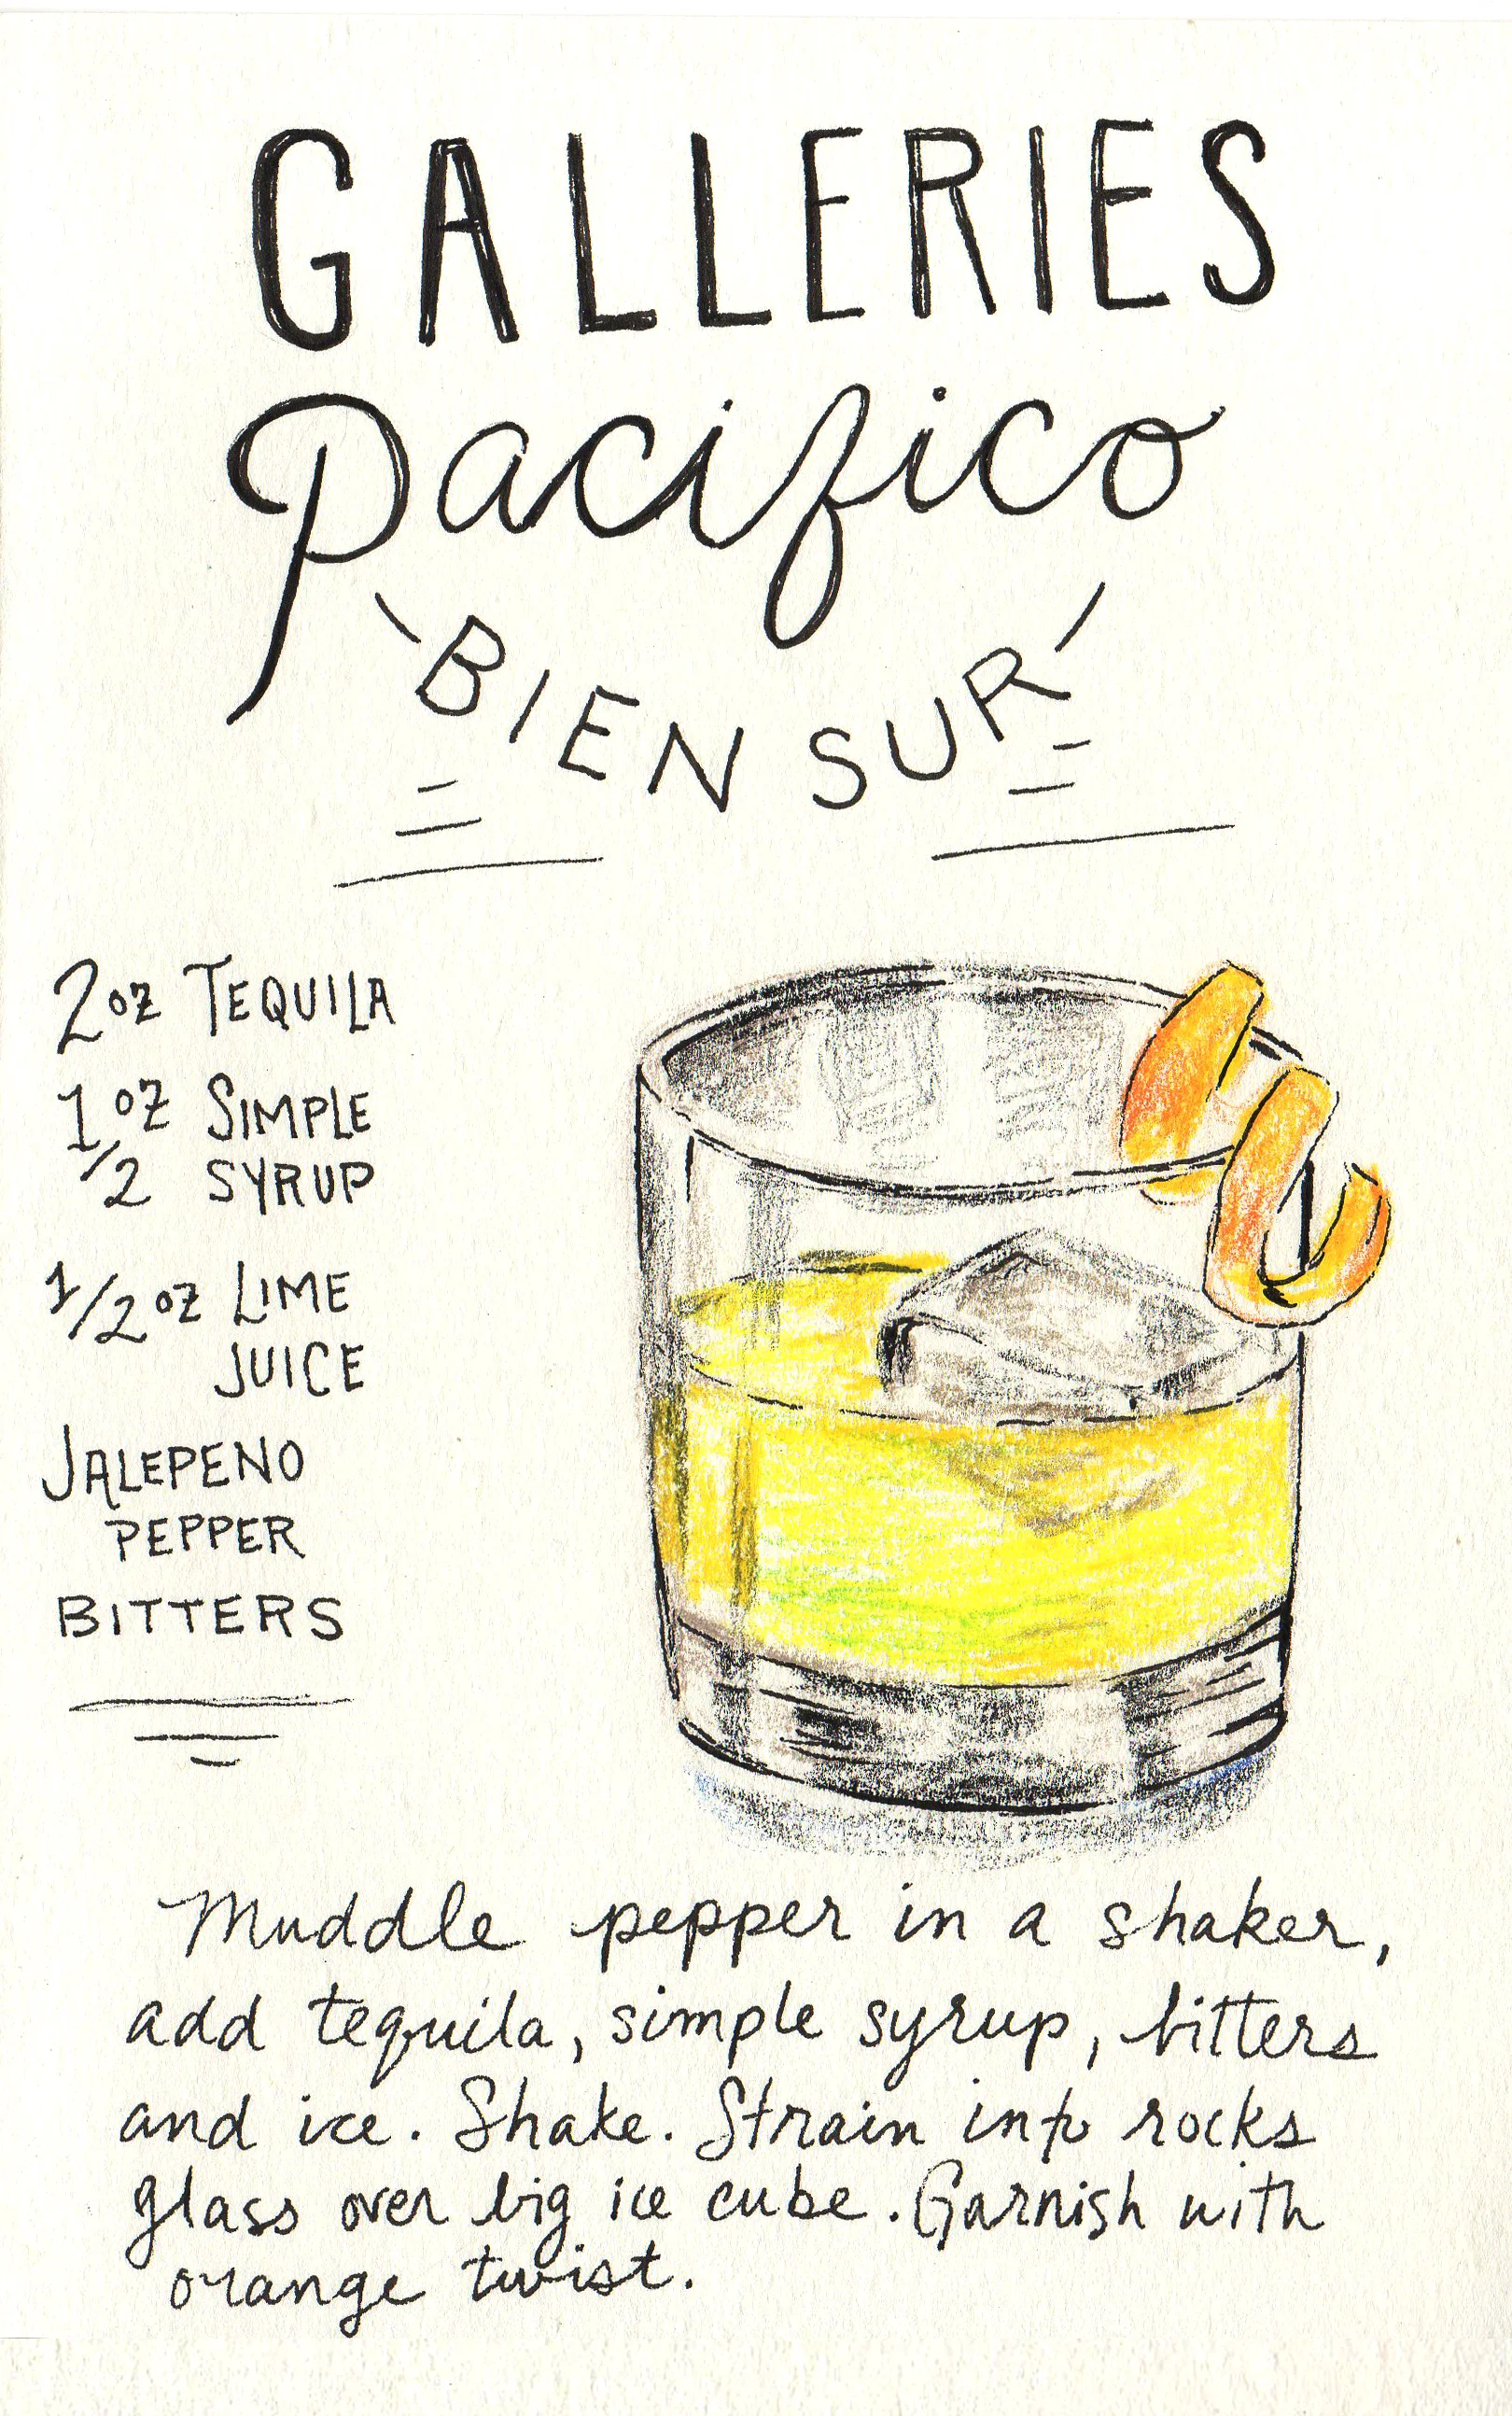 GALLERIES
Pacifico
BIEN SUR
2oz TEQUILA
1oz SIMPLE
/2 SYRUP
1/2oz LIME
JUICE
JALEPENO
PEPPER
BITTERS
Muddle pepper in a shaker,
add tequila, simple syrup, bitters
and ice. Shake. Strain into rocks
glass over big ice cube. Garnish with
orange twist.